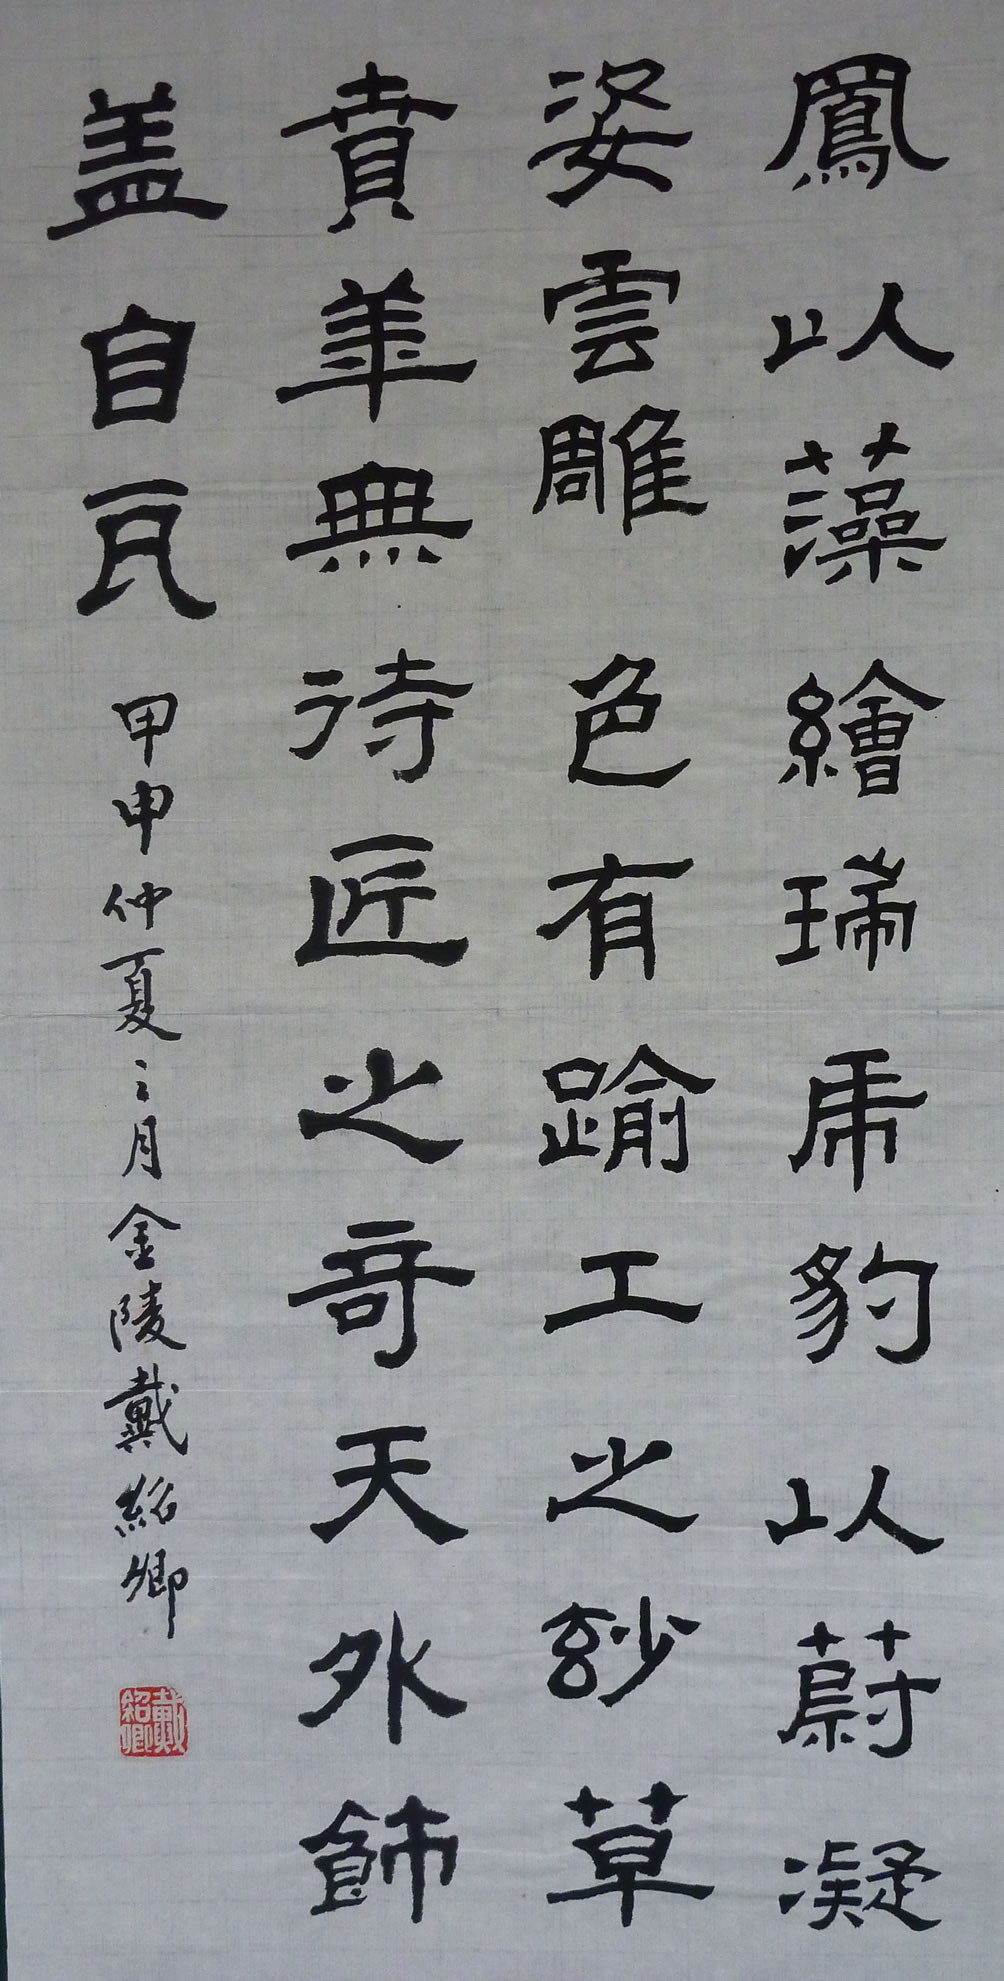 鳳以藻繪瑞虎豹以蔚凝
姿雲雕色有踰工之玅草
賁華無待匠之竒天外飾
盖自
甲申仲夏之月金陵戴紹卿
戴紹卿